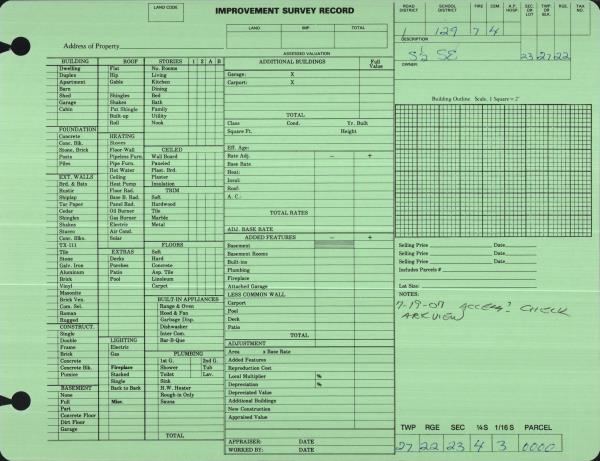 LAND CODE
IMPROVEMENT SURVEY RECORD
LAND IMP. TOTAL
Address of Property
ASSESSED VALUATION
ROAD DISTRICT SCHOOL DISTRICT FIRE CEM. A.P. HOSP. SEC. OR LOT TWP. OR BLK. RGE. TAX NO.
1 129 7 4
DESCRIPTION
S½ SE 23 27 22
OWNER
BUILDING
Dwelling
Duplex
Apartment
Barn
Shed
Garage
Cabin
FOUNDATION
Concrete
Conc. Blk.
Stone, Brick
Posts
Piles
EXT. WALLS
Brd. & Bats
Rustic
Shiplap
Tar Paper
Cedar
Shingles
Shakes
Stucco
Conc. Blks.
TX-111
Tile
Stone
Galv. Iron
Aluminum
Brick
Vinyl
Masonite
Brick Ven.
Com. Sel.
Roman
Rugged
CONSTRUCT.
Single
Double
Frame
Brick
Concrete
Concrete Blk.
Pumice
BASEMENT
None
Full
Part
Concrete Floor
Dirt Floor
Garage
ROOF
Flat
Hip
Gable
Shingles
Shakes
Pat Shingle
Built-up
Roll
HEATING
Stoves
Floor-Wall
Pipeless Furn.
Pipe Furn.
Hot Water
Ceiling
Heat Pump
Floor Rad.
Base B. Rad.
Panel Rad.
Oil Burner
Gas Burner
Electric
Air Cond.
Solar
EXTRAS
Decks
Porches
Patio
Pool
LIGHTING
Electric
Gas
Fireplace
Stacked
Single
Back to Back
Misc.
STORIES 1 2 A B
No. Rooms
Living
Kitchen
Dining
Bed
Bath
Family
Utility
Nook
CEILED
Wall Board
Paneled
Plast. Brd.
Plaster
Insulation
TRIM
Soft
Hardwood
Tile
Marble
Metal
FLOORS
Soft
Hard
Concrete
Asp. Tile
Linoleum
Carpet
BUILT-IN APPLIANCES
Range & Oven
Hood & Fan
Garbage Disp.
Dishwasher
Inter Com.
Bar-B-Que
PLUMBING
1st G. 2nd G.
Shower Tub
Toilet Lav.
Sink
H.W. Heater
Rough-in Only
Sauna
TOTAL
ADDITIONAL BUILDINGS Full Value
Garage: X
Carport: X
TOTAL
Class Cond. Yr. Built
Square Ft. Height
Eff. Age:
Rate Adj. − +
Base Rate
Heat:
Insul:
Roof:
A. C.:
TOTAL RATES
ADJ. BASE RATE
ADDED FEATURES − +
Basement
Basement Rooms
Built-ins
Plumbing
Fireplace
Attached Garage
LESS COMMON WALL
Carport
Pool
Deck
Patio
TOTAL
ADJUSTMENT
Area x Base Rate
Added Features
Reproduction Cost
Local Multiplier %
Depreciation %
Depreciated Value
Additional Buildings
New Construction
Appraised Value
APPRAISER: DATE
WORKED BY: DATE
Building Outline Scale, 1 Square = 2'
Selling Price Date
Selling Price Date
Selling Price Date
Includes Parcels #
Lot Size:
NOTES:
7-19-07 ACCESS? CHECK
ARKVIEW
TWP RGE SEC ¼S 1/16 S PARCEL
27 22 23 4 3 0000